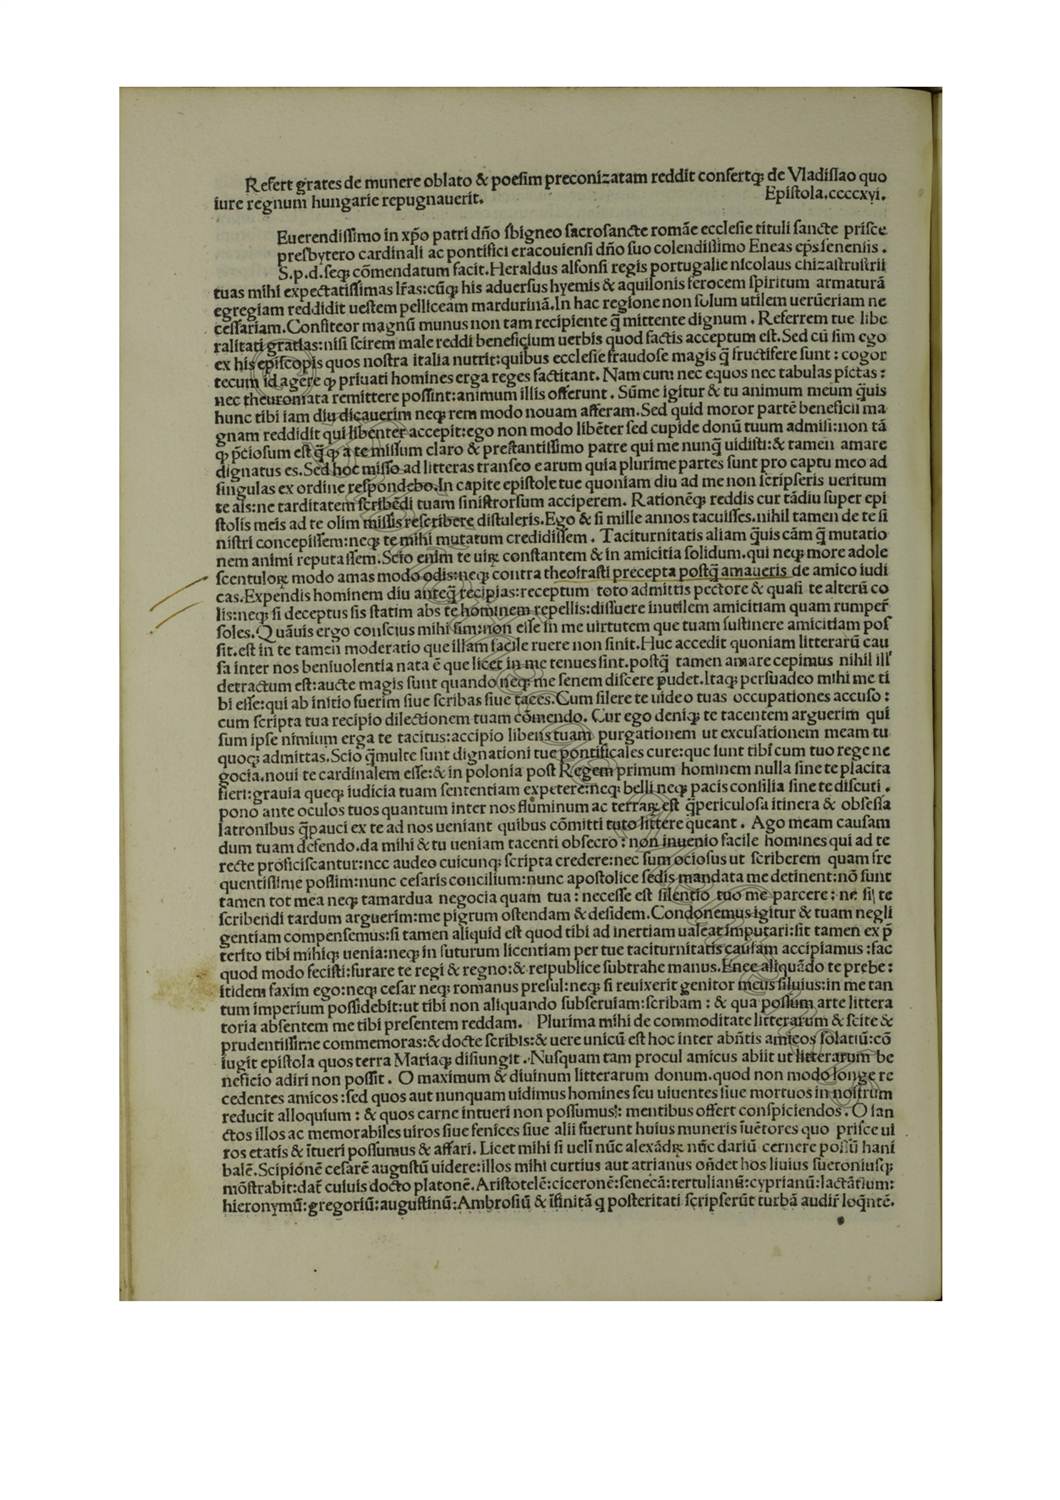 Refert grates de munere oblato & poesim preconizatam reddit confertqꝫ de Vladislao quo
iure regnum hungarie repugnauerit. Epistola.ccccxvi.
Euerendissimo in xp̄o patri dño sbigneo sacrosancte romāe ecclesie tituli sancte prisce
presbytero cardinali ac pontifici cracouiensi dño suo colendissimo Eneas ep̄s seneñis .
S.p.d.seqꝫ cōmendatum facit.Heraldus alfonsi regis portugalie nicolaus chizastrustrii
tuas mihi expectatissimas lr̄as:cūqꝫ his aduersus hyemis & aquilonis ferocem spiritum armaturā
egregiam reddidit uestem pelliceam mardurinā.In hac regione non solum utilem ueru̅eriam ne
cessariam.Confiteor magnū munus non tam recipiente q̄ mittente dignum . Referrem tue libe
ralitati gratias:nisi scirem male reddi beneficium uerbis quod factis acceptum est.Sed cū sim ego
ex his episcopis quos nostra italia nutrit:quibus ecclesie fraudose magis q̄ fructifere sunt : cogor
tecum id agere qꝫ priuati homines erga reges factitant. Nam cum nec equos nec tabulas pictas :
nec theuroniata remittere possint:animum illis offerunt . Sūme igitur & tu animum meum q̄uis
hunc tibi iam diu dicauerim neqꝫ rem modo nouam afferam.Sed quid moror partē beneficii ma
gnam reddidit qui libenter accepit:ego non modo libēter sed cupide donū tuum admisi:non tā
qꝫ p̄ciosum est q̄ qꝫ a te missum claro & prestantissimo patre qui me nunq̄ uidisti:& tamen amare
dignatus es.Sed hoc misso ad litteras transeo earum quia plurime partes sunt pro captu meo ad
singulas ex ordine respondebo.In capite epistole tue quoniam diu ad me non scripseris ueritum
te ais:ne tarditatem scribēdi tuam sinistrorsum acciperem. Rationēqꝫ reddis cur tādiu super epi
stolis meis ad te olim missis rescribere distuleris.Ego & si mille annos tacuisses.nihil tamen de te si
nistri concepissem:neqꝫ te mihi mutatum credidissem . Taciturnitatis aliam q̄uis cām q̄ mutatio
nem animi reputassem.Scio enim te uirꝫ constantem & in amicitia solidum.qui neqꝫ more adole
scentulorꝫ modo amas modo odis:neqꝫ contra theofrasti precepta postq̄ amaueris de amico iudi
cas.Expendis hominem diu anteq̄ recipias:receptum toto admittis pectore & quasi te alterū co
lis:neqꝫ si deceptus sis statim abs te hominem repellis:dissuere inutilem amicitiam quam rumper̄
soles.Quāuis ergo conscius mihi sim:non esse in me uirtutem que tuam sustinere amicitiam pos
sit.est in te tamen moderatio que illam facile ruere non sinit.Huc accedit quoniam litterarū cau
sa inter nos beniuolentia nata ē que licet in me tenues sint.postq̄ tamen amare cepimus nihil ill'
detractum est:aucte magis sunt quando neqꝫ me senem discere pudet.Itaqꝫ persuadeo mihi me ti
bi esse:qui ab initio fuerim siue scribas siue taces.Cum silere te uideo tuas occupationes accuso :
cum scripta tua recipio dilectionem tuam cōmendo. Cur ego deniqꝫ te tacentem arguerim qui
sum ipse nimium erga te tacitus:accipio libens tuam purgationem ut excusationem meam tu
quoqꝫ admittas.Scio q̄multe sunt dignationi tue pontificales cure:que sunt tibi cum tuo rege ne
gocia.noui te cardinalem esse:& in polonia post Regem primum hominem nulla sine te placita
fieri:grauia queqꝫ iudicia tuam sententiam expetere:neqꝫ belli neqꝫ pacis consilia sine te discuti .
pono ante oculos tuos quantum inter nos fluminum ac terrarꝫ est q̄periculosa itinera & obsessa
latronibus q̄pauci ex te ad nos ueniant quibus cōmitti tuto littere queant . Ago meam causam
dum tuam defendo.da mihi & tu ueniam tacenti obsecro : non inuenio facile homines qui ad te
recte proficiscantur:nec audeo cuicunqꝫ scripta credere:nec sum ociosus ut scriberem quam fre
quentissime possim:nunc cesaris concilium:nunc apostolice sedis mandata me detinent:nō sunt
tamen tot mea neqꝫ tamardua negocia quam tua : necesse est silentio tuo me parcere : ne si te
scribendi tardum arguerim:me pigrum ostendam & desidem.Condonemus igitur & tuam negli
gentiam compensemus:si tamen aliquid est quod tibi ad inertiam ualeat imputari:sit tamen ex p̄
terito tibi mihiqꝫ uenia:neqꝫ in futurum licentiam per tue taciturnitatis causam accipiamus :fac
quod modo fecisti:furare te regi & regno:& reipublice subtrahe manus.Enee aliquādo te prebe :
itidem faxim ego:neqꝫ cesar neqꝫ romanus presul:neqꝫ si reuixerit genitor meus siluius:in me tan
tum imperium possidebit:ut tibi non aliquando subseruiam:scribam : & qua possum arte littera
toria absentem me tibi presentem reddam. Plurima mihi de commoditate litterarum & scite &
prudentissime commemoras:& docte scribis:& uere unicū est hoc inter abn̄tis amicos solatiū:cō
iugit epistola quos terra Mariaqꝫ disiungit . Nusquam tam procul amicus abiit ut litterarum be
neficio adiri non possit . O maximum & diuinum litterarum donum.quod non modo longe re
cedentes amicos :sed quos aut nunquam uidimus homines seu uiuentes siue mortuos in nostrum
reducit alloquium : & quos carne intueri non possumus: mentibus offert conspiciendos.O san
ctos illos ac memorabiles uiros siue fenices siue alii fuerunt huius muneris iuētores quo prisce ui
ros etatis & ītueri possumus & affari. Licet mihi si ueli nūc alexādrꝫ nūc dariū cernere possū hani
balē.Scipionē cesarē augustū uidere:illos mihi curtius aut atrianus on̄det hos liuius sueroniusqꝫ
mōstrabit:dat̄ cuiuis docto platonē.Aristotelē:ciceronē:senecā:tertulianū:cyprianū:lactātium:
hieronymū:gregoriū:augustinū:Ambrosiū & īfinitā q posteritati scripserūt turbā audir̄ loq̄ntē.